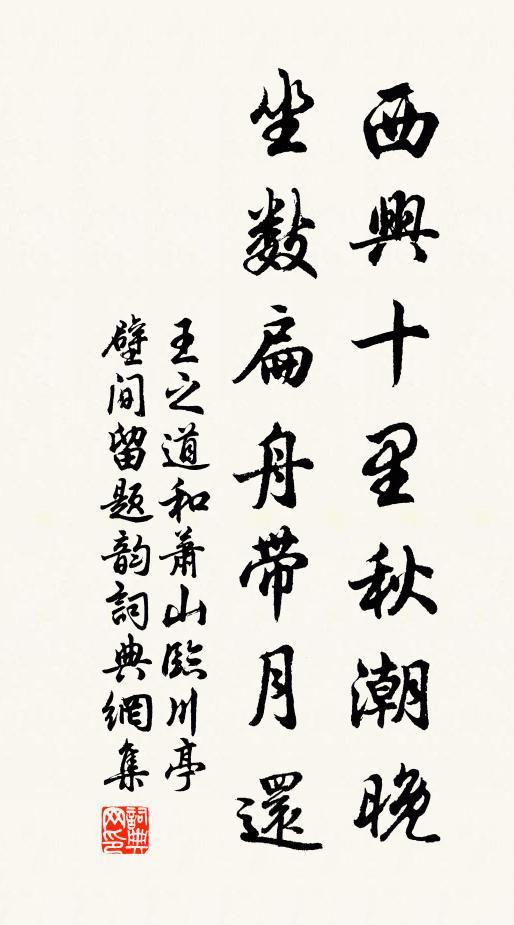 西興十里秋潮晚
坐數扁舟帶月還
王之道和蕭山臨川亭
壁间留题韵詞典網集
詞典网印